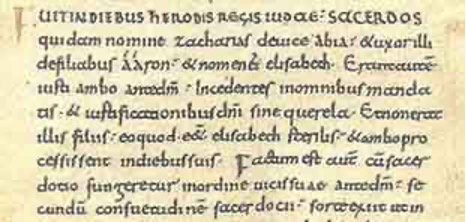 FUIT IN DIEBUS HERODIS REGIS IUDAE: SACERDOS
quidam nomine zacharias deuice abia: & uxor illi
defiliabus ááron: & nomen ei elisabeth. Erant autē
iusti ambo ante dm̄: Incedentes in omnibus manda
tis. & iustificationibus dn̄i sine querela. Et non erat
illis filius: eo quod ess& elisabeth sterilis: & ambo pro
cessissent in diebus suis. Factum est aut̄ cū sacer
dotio fungeretur in ordine uicis suae ante dm̄: se
cundū consuetudinē sacerdotii: sorte exiit ut in